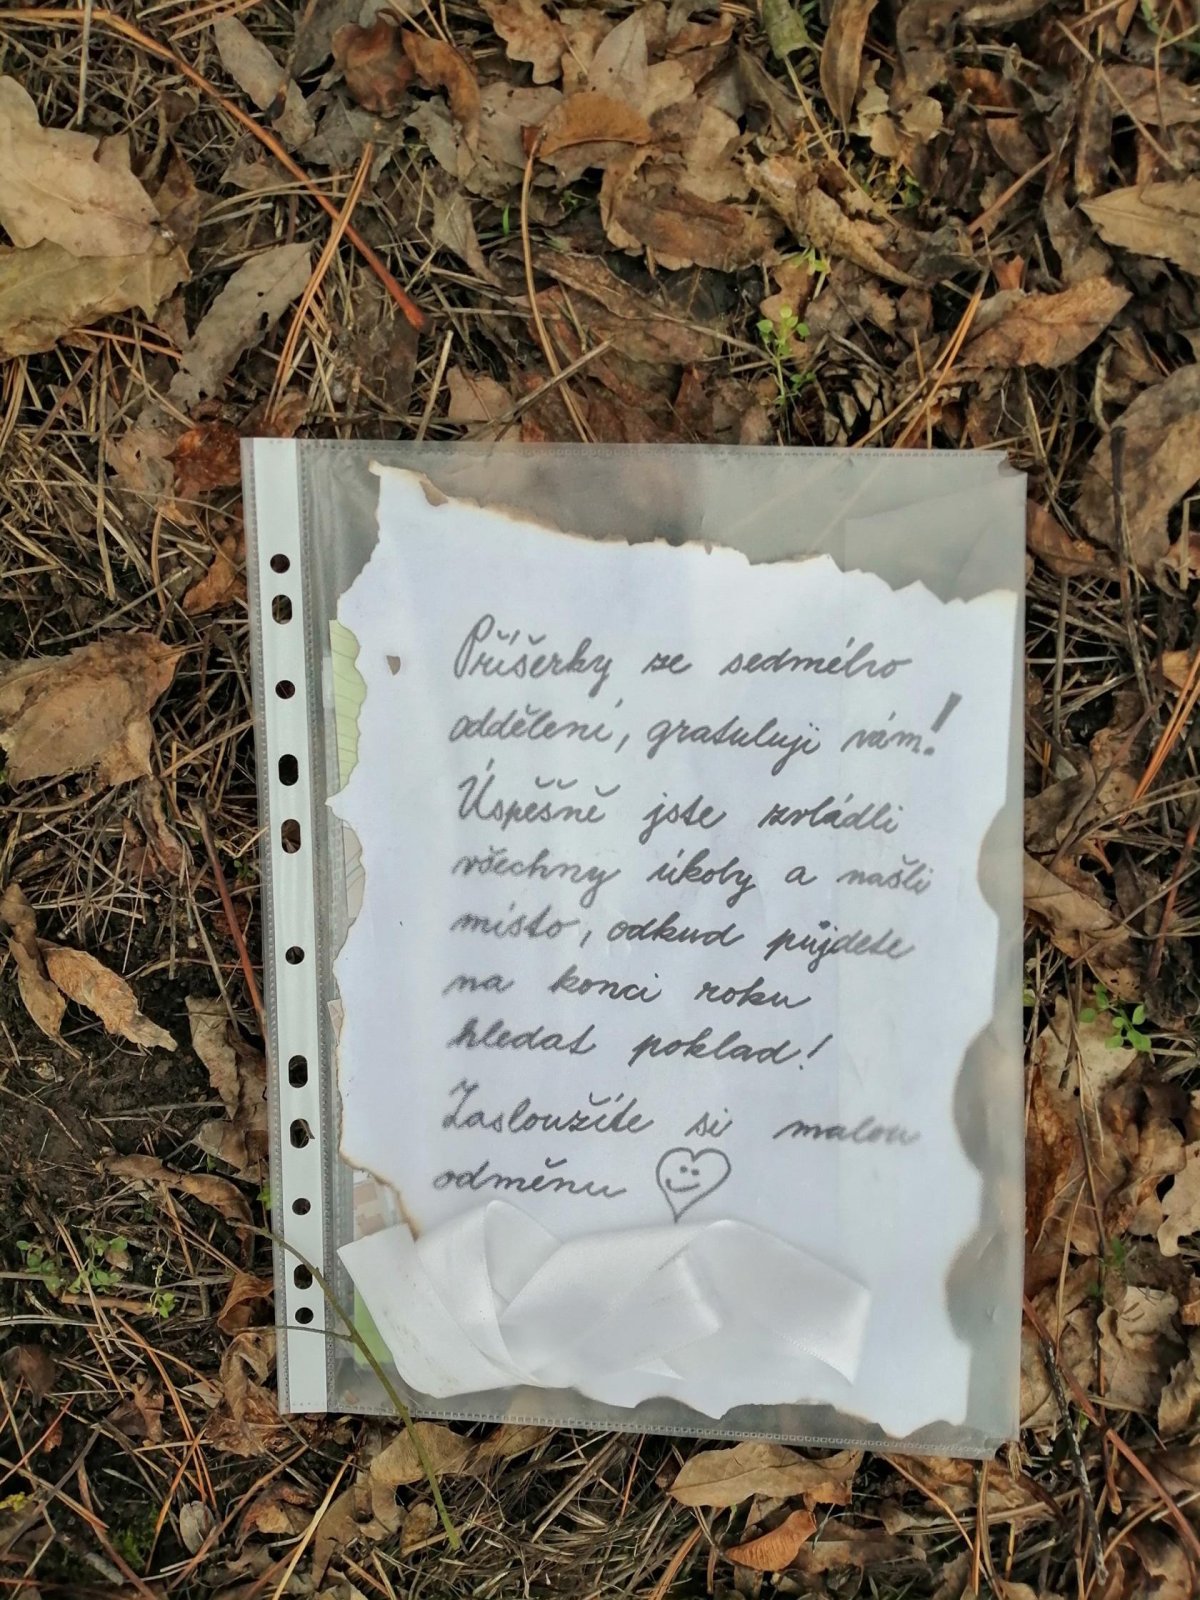 Příšerky ze sedmého
oddělení, gratuluji vám!
Úspěšně jste zvládli
všechny úkoly a našli
místo, odkud půjdete
na konci roku
hledat poklad!
Zasloužíte si malou
odměnu